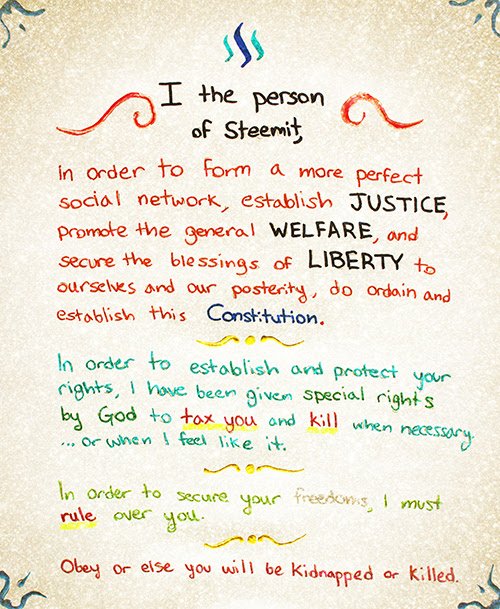 I the person
of Steemit,
In order to form a more perfect
social network, establish JUSTICE,
promote the general WELFARE, and
secure the blessings of LIBERTY to
ourselves and our posterity, do ordain and
establish this Constitution.
In order to establish and protect your
rights, I have been given special rights
by God to tax you and kill when necessary.
... or when I feel like it.
In order to secure your freedoms, I must
rule over you.
Obey or else you will be kidnapped or killed.